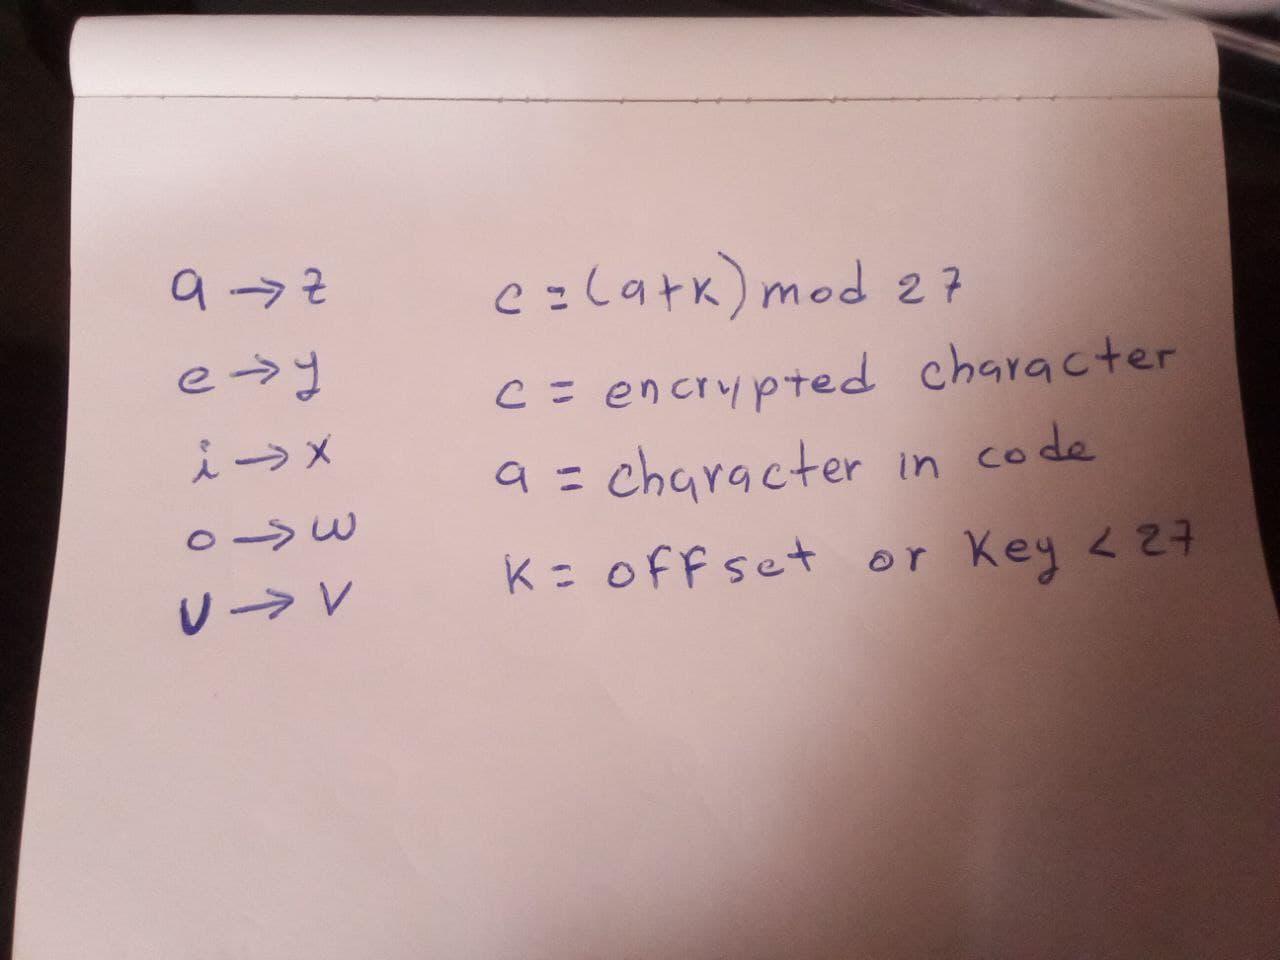 a → z
e → y
i → x
o → w
u → v
c = (a+k) mod 27
c = encrypted character
a = character in code
k = offset or key < 27